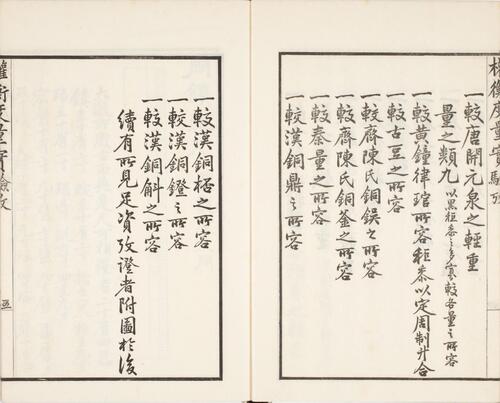 權衡度量實驗攷
一較唐開元泉之輕重
量之類九以黑秬黍之多寡較各量之所容
一較黃鐘律琯所容秬黍以定周制升合
一較古豆之所容
一較齊陳氏銅鋘之所容
一較齊陳氏銅釜之所容
一較秦量之所容
一較漢銅鼎之所容
一較漢銅桮之所容
一較漢銅鐙之所容
一較漢銅斛之所容
續有所見足資攷證者附圖於後
權衡度量實驗攷
五